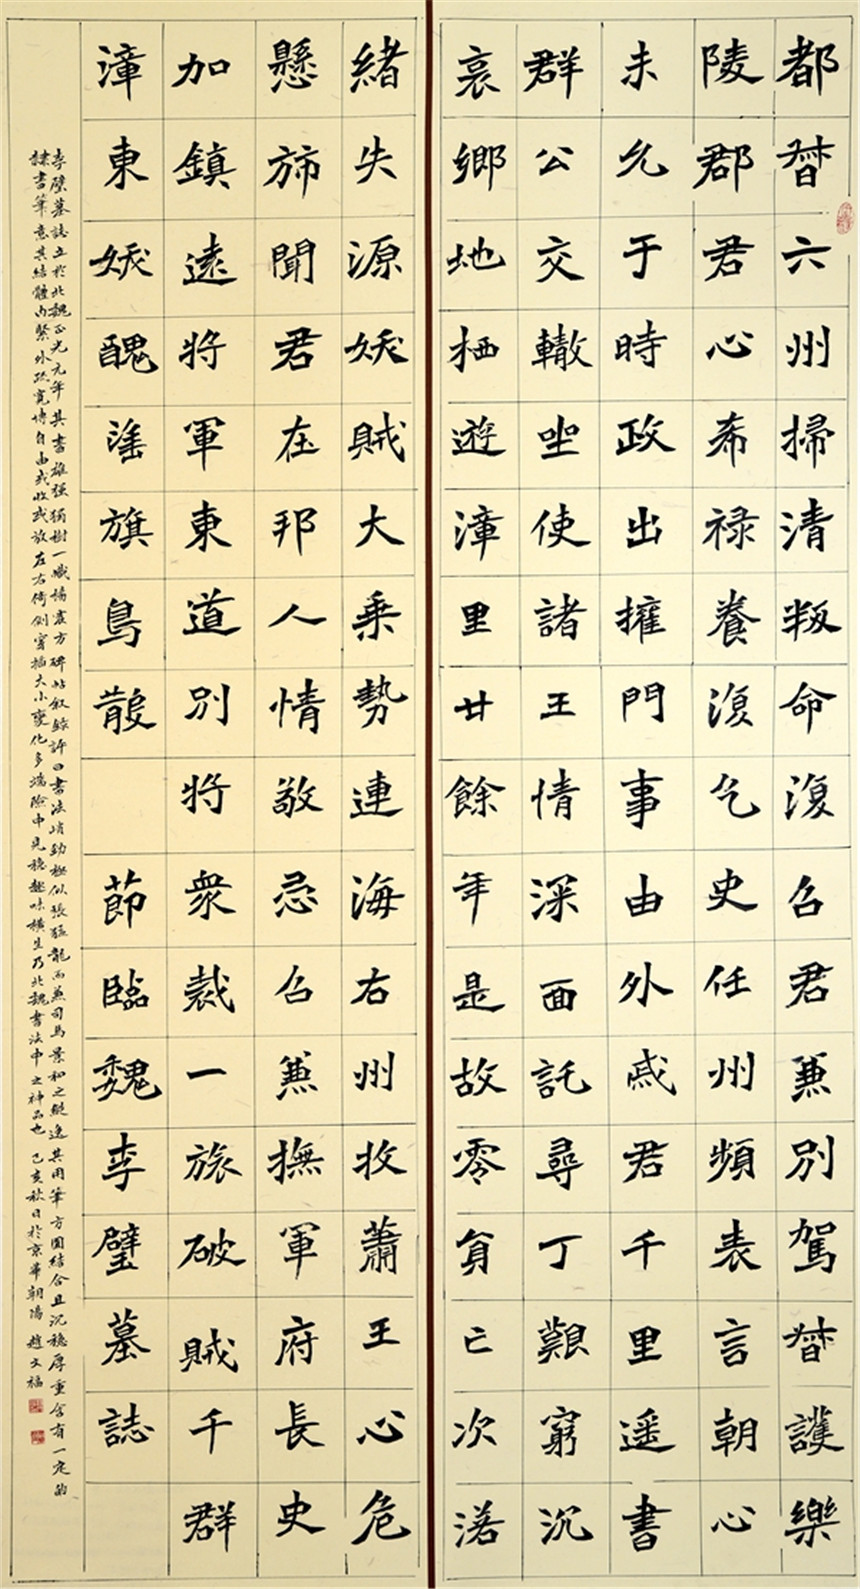 都督六州掃清叛命復召君兼別駕督護樂
陵郡君心希祿養復乞史任州頻表言朝心
未允于時政出擁門事由外戚君千里遥書
群公交轍坐使諸王情深面託尋丁艱窮沉
哀鄉地栖遊漳里廿餘年是故零負亡次落
緒失源妖賊大乘勢連海右州牧蕭王心危
懸旆聞君在邦人情敬忌召兼撫軍府長史
加鎮遠將軍東道別將衆裁一旅破賊千群
漳東妖醜滛旗鳥散 節臨魏李璧墓誌
李璧墓誌立於北魏正光元年其書雄強獨樹一幟楊震方碑帖叙錄評曰書法峭勁極似張猛龍而兼司馬景和之縱逸其用筆方圓結合且沉穩厚重含有一定的
隸書筆意其結體内緊外疏寬博自由或收或放左右倚側穿插大小變化多端險中見穩趣味橫生乃北魏書法中之神品也 己亥秋日於京華朝陽 趙文福